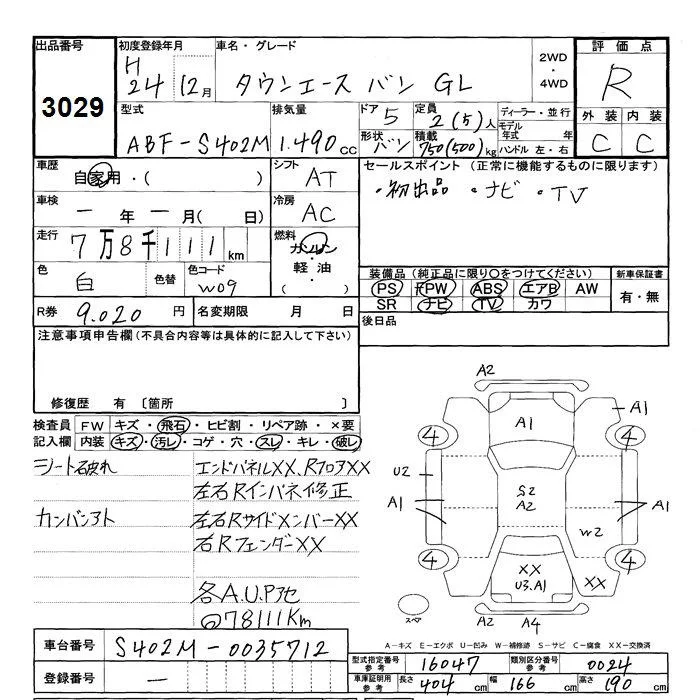 出品番号 初度登録年月 車名・グレード 評価点
3029
H24 12月 タウンエース バン GL 2WD・4WD R
外装 内装
C C
型式 排気量 ドア 定員 ディーラー・並行
ABF-S402M 1.490cc 5 2(5)人 モデル年式 年
形状 バン 積載 750(500)kg ハンドル 左・右
車歴 自家用・( ) シフト AT
セールスポイント (正常に機能するものに限ります)
・初出品 ・ナビ ・TV
車検 一年一月( 日) 冷房 AC
走行 7万8千111km 燃料 ガソリン・軽油・( )
色 白 色替 色コード W09
装備品 (純正品に限り○をつけてください) 新車保証書
PS PW ABS エアB AW 有・無
SR ナビ TV カワ
R券 9.020円 名変期限 月 日 後日品
注意事項申告欄(不具合内容等は具体的に記入して下さい)
修復歴 有 〔箇所 〕
検査員 FW キズ・飛石・ヒビ割・リペア跡・×要
記入欄 内装 キズ・汚レ・コゲ・穴・スレ・キレ・破レ
シート破れ エンドパネルXX、RフロアXX
左右Rインパネ修正
カンバンアト 左右RサイドメンバーXX
右RフェンダーXX
各A.U.Pアセ
@78111Km
A2
A1 A1
4 4
U2
S2
A2
A1 A1
W2
4 4
XX
U3.A1 XX
スペア A2 A4
A-キズ E-エクボ U-凹み W-補修跡 S-サビ C-腐食 XX-交換済
車台番号 S402M-0035712
型式指定番号 参考 16047 類別区分番号 参考 0024
登録番号 —
車庫証明用 参考 長さ 404cm 幅 166cm 高さ 190cm